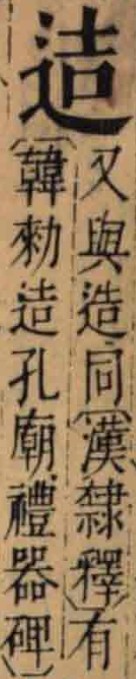 迼
又與造同〔漢隸釋〕有
〔韓勑迼孔廟禮器碑〕